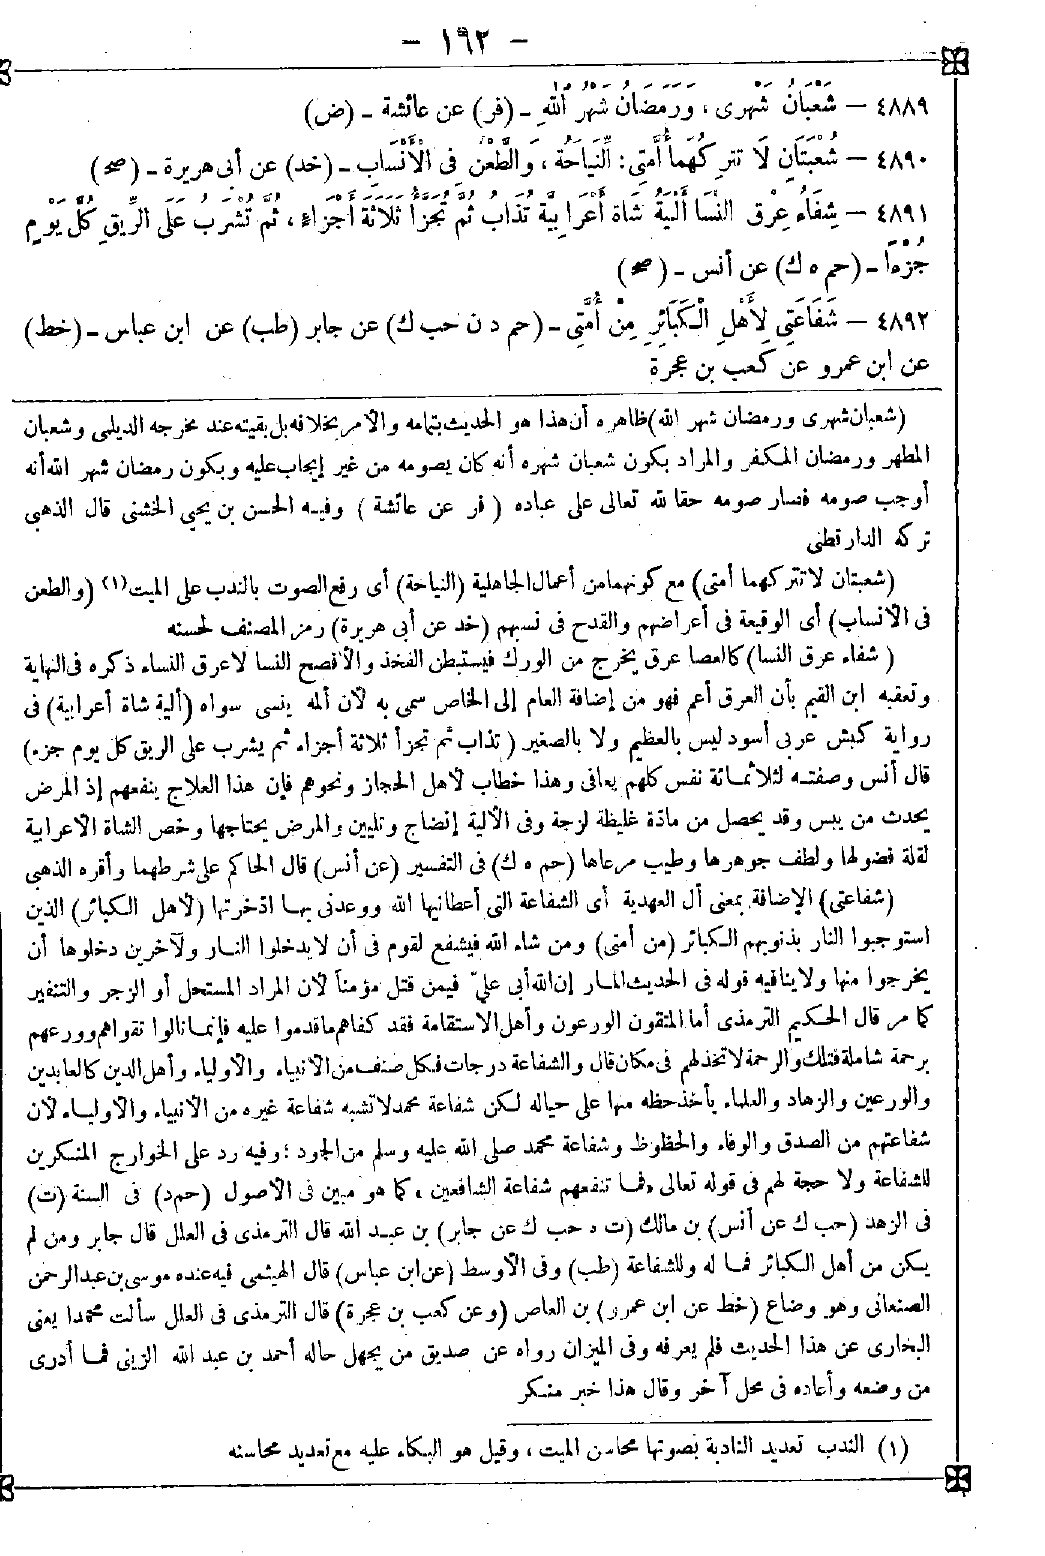 - ١٦٢ -
٤٨٨٩ - شَعْبَانُ شَهْرِى ، وَرَمَضَانُ شَهْرُ اللهِ - (فر) عن عائشة - (ض)
٤٨٩٠ - شُعْبَتَانِ لَا تَتْرُكُهُمَا أُمَّتِى : النِّيَاحَةُ ، وَالطَّعْنُ فِى الْأَنْسَابِ - (خد) عن أبى هريرة - (صح)
٤٨٩١ - شِفَاءُ عِرْقِ النَّسَا أَلْيَةُ شَاةٍ أَعْرَابِيَّةٍ تُذَابُ ثُمَّ تُجَزَّأُ ثَلَاثَةَ أَجْزَاءٍ ، ثُمَّ تُشْرَبُ عَلَى الرِّيقِ كُلَّ يَوْمٍ
جُزْءًا - (حم ه ك) عن أنس - (صح)
٤٨٩٢ - شَفَاعَتِى لِأَهْلِ الْكَبَائِرِ مِنْ أُمَّتِى - (حم د ن حب ك) عن جابر (طب) عن ابن عباس - (خط)
عن ابن عمرو عن كعب بن عجرة
(شعبان شهرى ورمضان شهر الله) ظاهره أن هذا هو الحديث بتمامه والأمر بخلافه بل بقيته عند مخرجه الديلمى وشعبان
المطهر ورمضان المكفر والمراد بكون شعبان شهره أنه كان يصومه من غير إيجاب عليه وبكون رمضان شهر الله أنه
أوجب صومه فصار صومه حقا لله تعالى على عباده (فر عن عائشة) وفيه الحسن بن يحيى الخشنى قال الذهبى
تركه الدارقطنى
(شعبتان لا تتركهما أمتى) مع كونهما من أعمال الجاهلية (النياحة) أى رفع الصوت بالندب على الميت (١) (والطعن
فى الأنساب) أى الوقيعة فى أعراضهم والقدح فى نسبهم (خد عن أبى هريرة) رمز المصنف لحسنه
(شفاء عرق النسا) كالعصا عرق يخرج من الورك فيستبطن الفخذ والأفصح النسا لا عرق النساء ذكره فى النهاية
وتعقبه ابن القيم بأن العرق أعم فهو من إضافة العام إلى الخاص سمى به لأن ألمه ينسى سواه (ألية شاة أعرابية) فى
رواية كبش عربى أسود ليس بالعظيم ولا بالصغير (تذاب ثم تجزأ ثلاثة أجزاء ثم يشرب على الريق كل يوم جزء)
قال أنس وصفته لثلاثمائة نفس كلهم يعافى وهذا خطاب لأهل الحجاز ونحوهم فإن هذا العلاج ينفعهم إذ المرض
يحدث من يبس وقد يحصل من مادة غليظة لزجة وفى الألية إنضاج وتليين والمرض يحتاجها وخص الشاة الأعرابية
لقلة فضولها ولطف جوهرها وطيب مرعاها (حم ه ك) فى التفسير (عن أنس) قال الحاكم على شرطهما وأقره الذهبى
(شفاعتى) الإضافة بمعنى أل العهدية أى الشفاعة التى أعطانيها الله ووعدنى بها ادخرتها (لأهل الكبائر) الذين
استوجبوا النار بذنوبهم الكبائر (من أمتى) ومن شاء الله فيشفع لقوم فى أن لا يدخلوا النار ولآخرين دخلوها أن
يخرجوا منها ولا ينافيه قوله فى الحديث المار إن الله أبى علىّ فيمن قتل مؤمناً لأن المراد المستحل أو الزجر والتنفير
كما مر قال الحكيم الترمذى أما المتقون الورعون وأهل الاستقامة فقد كفاهم ما قدموا عليه فإنما نالوا تقواهم وورعهم
برحمة شاملة فتلك والرحمة لا تخذلهم فى مكان قال والشفاعة درجات فكل صنف من الأنبياء والأولياء وأهل الدين كالعابدين
والورعين والزهاد والعلماء يأخذ حظه منها على حياله لكن شفاعة محمد لا تشبه شفاعة غيره من الأنبياء والأولياء لأن
شفاعتهم من الصدق والوفاء والحظوظ وشفاعة محمد صلى الله عليه وسلم من الجود ؛ وفيه رد على الخوارج المنكرين
للشفاعة ولا حجة لهم فى قوله تعالى « فما تنفعهم شفاعة الشافعين » كما هو مبين فى الأصول (حم د) فى السنة (ت)
فى الزهد (حب ك عن أنس) بن مالك (ت ه حب ك عن جابر) بن عبد الله قال الترمذى فى العلل قال جابر ومن لم
يكن من أهل الكبائر فما له وللشفاعة (طب) وفى الأوسط (عن ابن عباس) قال الهيثمى فيه عنده موسى بن عبد الرحمن
الصنعانى وهو وضاع (خط عن ابن عمرو) بن العاص (وعن كعب بن عجرة) قال الترمذى فى العلل سألت محمدا يعنى
البخارى عن هذا الحديث فلم يعرفه وفى الميزان رواه عن صديق من يجهل حاله أحمد بن عبد الله الزينى فما أدرى
من وضعه وأعاده فى محل آخر وقال هذا خبر منكر
(١) الندب تعديد النادبة بصوتها محاسن الميت ، وقيل هو البكاء عليه مع تعديد محاسنه